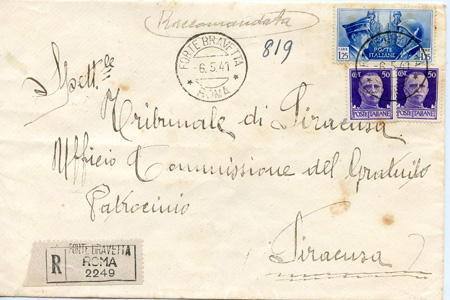 Raccomandata
819
FORTE BRAVETTA
6.5.41
ROMA
POSTE
ITALIANE
1,25
1,25
CENT. 50
50
POSTE ITALIANE
POSTE ITALIANE
Spett.le
Tribunale di Siracusa
Ufficio Commissione del Gratuito
Patrocinio
Siracusa
R
FORTE BRAVETTA
ROMA
2249